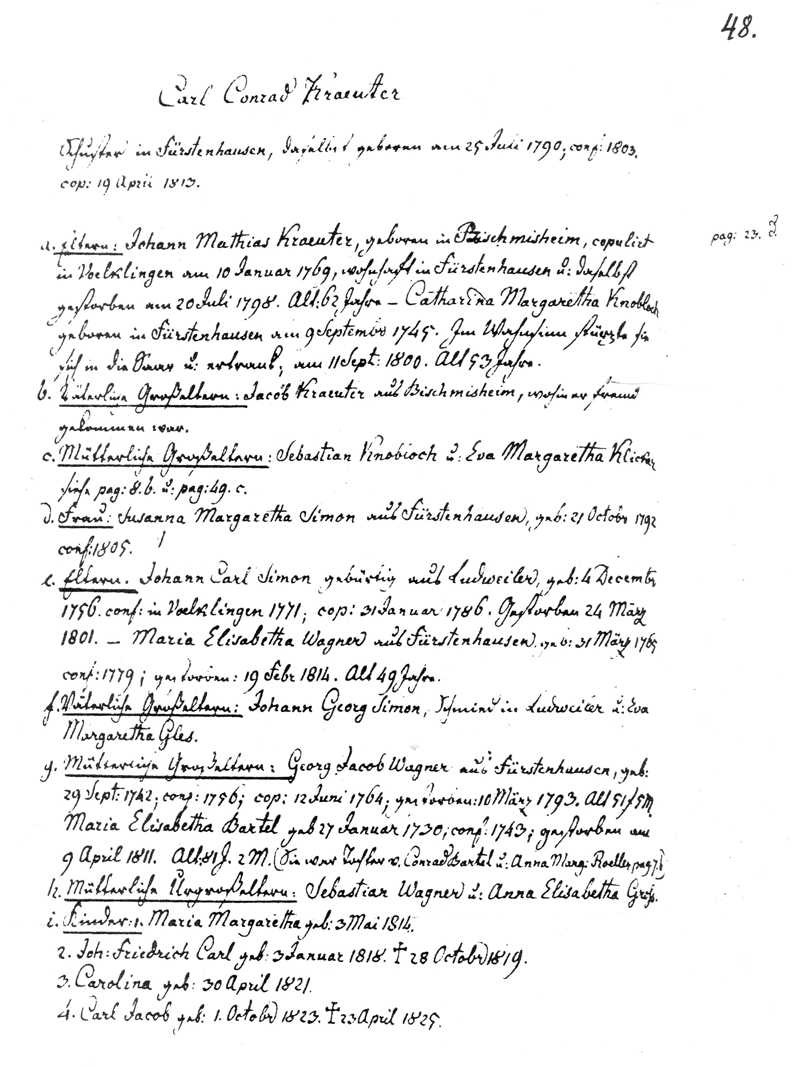 48.
Carl Conrad Kraeuter
Schuster in Fürstenhausen, daselbst geboren am 25 Juli 1790; conf: 1803.
cop: 19 April 1813.
a. Eltern: Johann Mathias Kraeuter, geboren in Bischmisheim, copulirt
pag: 23.
in Voelklingen am 10 Januar 1769, wohnhaft in Fürstenhausen u: daselbst
gestorben am 20 Juli 1798. Alt: 62 Jahre – Catharina Margaretha Knobloch
geboren in Fürstenhausen am 9 Septembr 1745. Im Wahnsinn stürzte sie
sich in die Saar u: ertrank, am 11 Sept: 1800. Alt 53 Jahre.
b. Väterliche Großeltern: Jacob Kraeuter aus Bischmisheim, wohin er fremd
gekommen war.
c. Mütterliche Großeltern: Sebastian Knobloch u: Eva Margaretha Klicker
siehe pag: 8. b. u: pag: 49. c.
d. Frau: Susanna Margaretha Simon aus Fürstenhausen, geb: 21 Octobr 1792
conf: 1805.
e. Eltern. Johann Carl Simon gebürtig aus Ludweiler, geb: 4 Decembr
1756. conf: in Voelklingen 1771; cop: 31 Januar 1786. Gestorben 24 März
1801. – Maria Elisabetha Wagner aus Fürstenhausen, geb: 31 März 1765
conf: 1779; gestorben: 19 Febr 1814. Alt 49 Jahre.
f. Väterliche Großeltern: Johann Georg Simon, Schmied in Ludweiler u: Eva
Margaretha Gles.
g. Mütterliche Großeltern: Georg Jacob Wagner aus Fürstenhausen, geb:
29 Sept: 1742; conf: 1756; cop: 12 Juni 1764; gestorben: 10 März 1793. Alt 51 J 5 M.
Maria Elisabetha Bartel geb 27 Januar 1730; conf: 1743; gestorben am
9 April 1811. Alt: 81 J. 2 M. (Sie war Tochter v. Conrad Bartel u: Anna Marg: Roeller, pag
h. Mütterliche Urgroßeltern: Sebastian Wagner u: Anna Elisabetha Groß.
i. Kinder: 1. Maria Margaretha geb: 3 Mai 1814.
2. Joh: Friedrich Carl geb: 3 Januar 1818. † 28 Octobr 1819.
3. Carolina geb: 30 April 1821.
4. Carl Jacob geb: 1. Octobr 1823. † 23 April 1825.